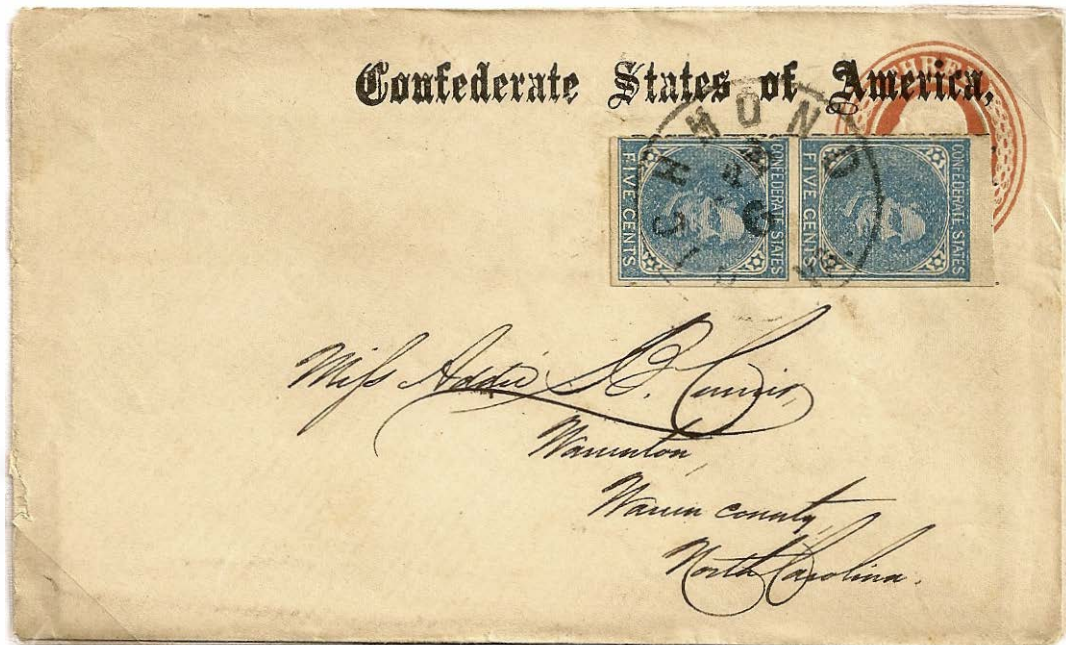 THREE
Confederate States of America,
RICHMOND VA.
CONFEDERATE STATES
FIVE CENTS
CONFEDERATE STATES
FIVE CENTS
Miss Addie
Warrenton,
Warren county,
North Carolina.